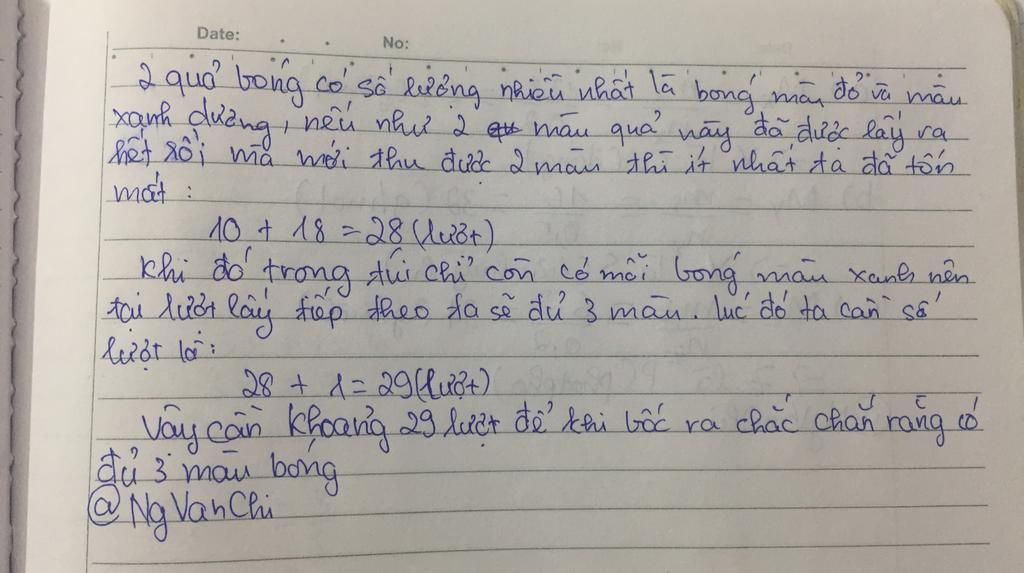 Date: No:
2 quả bóng có số lượng nhiều nhất là bóng màu đỏ và màu
xanh dương, nếu như 2 màu quả này đã được lấy ra
hết rồi mà mới thu được 2 màu thì ít nhất ta đã tốn
mất :
10 + 18 = 28 (lượt)
Khi đó trong túi chỉ còn có mỗi bóng màu xanh nên
tại lượt lấy tiếp theo ta sẽ đủ 3 màu. lúc đó ta cần số
lượt là:
28 + 1 = 29 (lượt)
Vậy cần khoảng 29 lượt để khi bốc ra chắc chắn rằng có
đủ 3 màu bóng
@NgVanChi